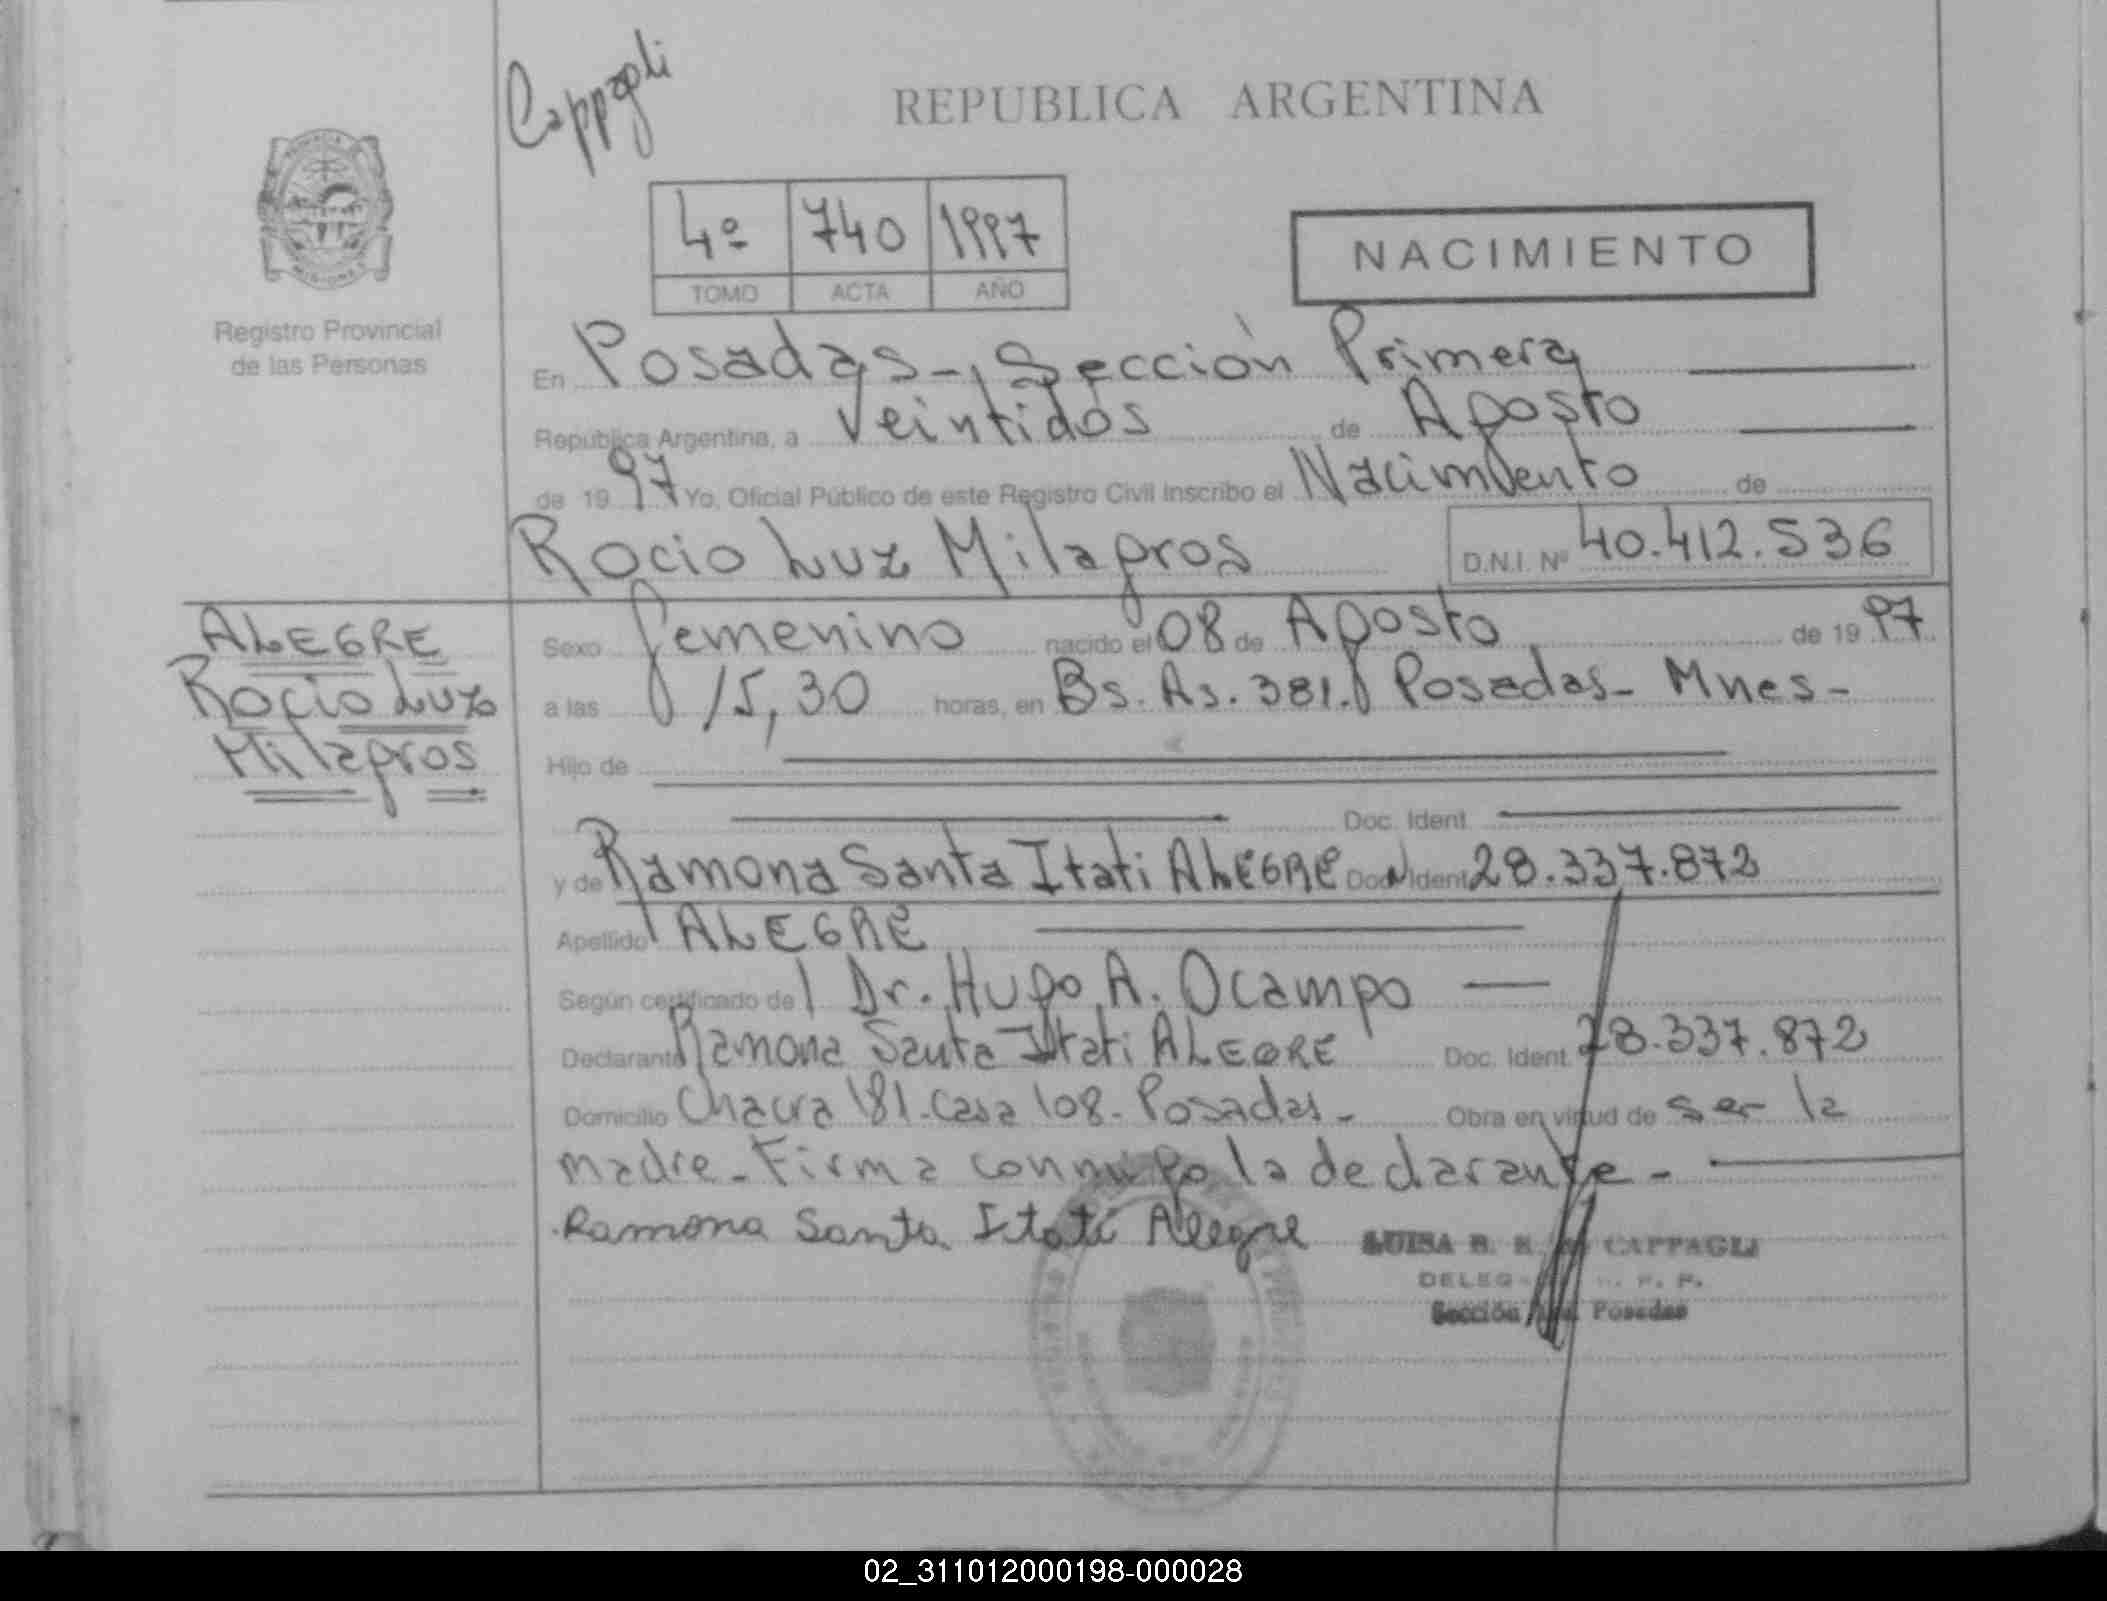 Cappagli
REPUBLICA ARGENTINA
4º 740 1997
TOMO ACTA AÑO
NACIMIENTO
Registro Provincial
de las Personas
En Posadas-, Sección Primera
Republica Argentina, a Veintidós de Agosto
de 1997 Yo, Oficial Público de este Registro Civil Inscribo el Nacimiento de
Rocio Luz Milagros D.N.I. Nº 40.412.536
ALEGRE
Rocio Luz
Milagros
Sexo Femenino nacido el 08 de Agosto de 1997
a las 15,30 horas, en Bs. As. 381. Posadas- Mnes-
Hijo de
Doc. Ident.
y de Ramona Santa Itati ALEGRE Doc. Ident. 28.337.872
Apellido ALEGRE
Según certificado del Dr. Hugo A. Ocampo
Declarante Ramona Santa Itati ALEGRE Doc. Ident. 28.337.872
Domicilio Chacra 181-Casa 108- Posadas- Obra en virtud de ser la
madre- Firma conmigo la declarante-
Ramona Santa Itatí Alegre
LUISA CAPPAGLI
Sección Posadas
02_311012000198-000028